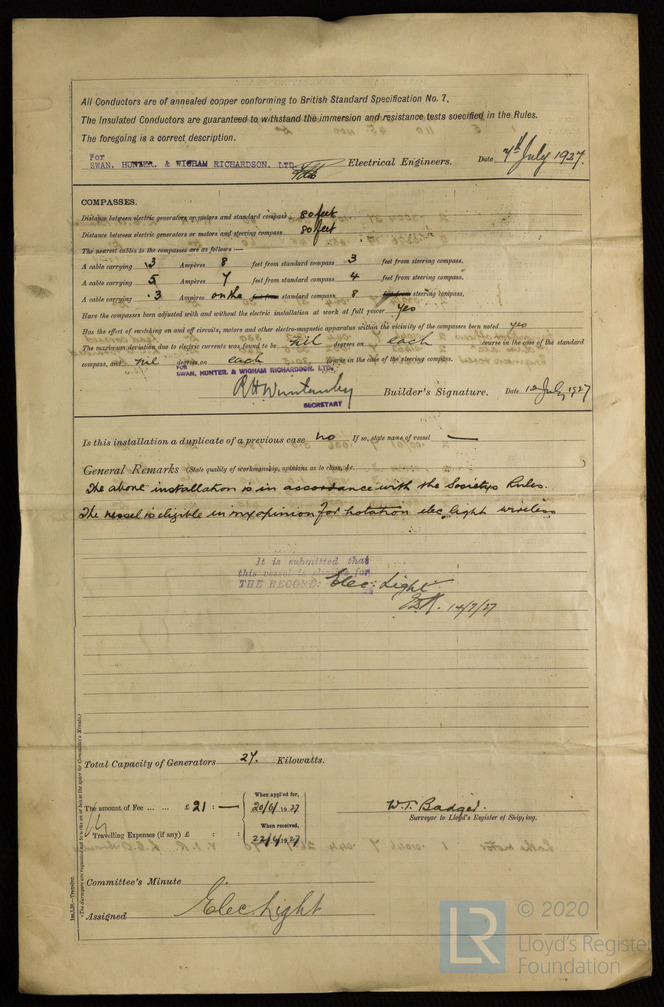 All Conductors are of annealed copper conforming to British Standard Specification No. 7.
The Insulated Conductors are guaranteed to withstand the immersion and resistance tests specified in the Rules.
The foregoing is a correct description.
For
SWAN, HUNTER, & WIGHAM RICHARDSON, LTD. Electrical Engineers. Date 7th July 1927.
COMPASSES.
Distance between electric generators or motors and standard compass 80 feet
Distance between electric generators or motors and steering compass 80 feet
The nearest cables to the compasses are as follows:—
A cable carrying .3 Ampères 8 feet from standard compass .3 feet from steering compass.
A cable carrying 5 Ampères 7 feet from standard compass 4 feet from steering compass.
A cable carrying .3 Ampères on the standard compass 8 steering compass.
Have the compasses been adjusted with and without the electric installation at work at full power yes
Has the effect of switching on and off circuits, motors and other electro-magnetic apparatus within the vicinity of the compasses been noted yes
The maximum deviation due to electric currents was found to be nil degrees on each course in the case of the standard
compass, and nil degrees on each course in the case of the steering compass.
FOR
SWAN, HUNTER, & WIGHAM RICHARDSON, LTD.
Builder's Signature. Date 12 July 1927
SECRETARY
Is this installation a duplicate of a previous case no If so, state name of vessel —
General Remarks (State quality of workmanship, opinions as to class, &c.
The above installation is in accordance with the Societys Rules.
The vessel is eligible in my opinion for notation elec light wireless
It is submitted that
this vessel is eligible for
THE RECORD: Elec: Light
14/7/27
Total Capacity of Generators 27. Kilowatts.
The amount of Fee ... ... £ 21 : — When applied for, 20/6/1927
When received,
Travelling Expenses (if any) £ : : 22/6/1927
W.T. Badger.
Surveyor to Lloyd's Register of Shipping.
Committee's Minute
Assigned Elec. Light
(The Surveyors are requested not to write on or below the space for Committee's Minute.)
© 2020
LR Lloyd's Register
Foundation